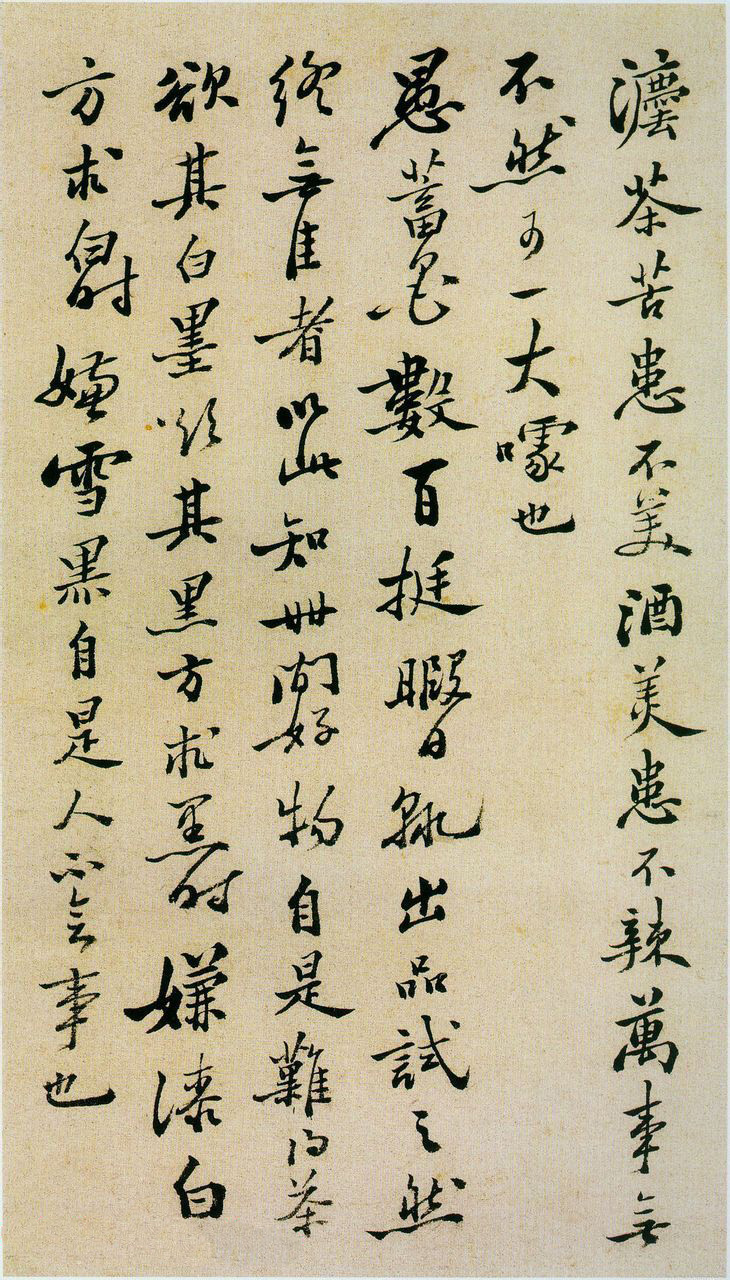 灋茶苦患不美酒美患不辣萬事無
不然可一大噱也
愚蓄墨數百挺暇日輒出品試之然
終無佳者以此知世間好物自是難得茶
欲其白墨欲其黑方求黑時嫌漆白
方求白時嫌雪黑自是人不會事也